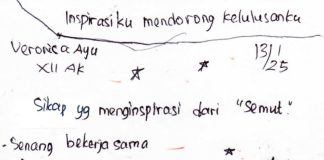 Inspirasiku mendorong kelulusanku
Veronica Ayu 13/1
XII AK 25
Sikap yg menginspirasi dari "Semut".
- Senang bekerja sama